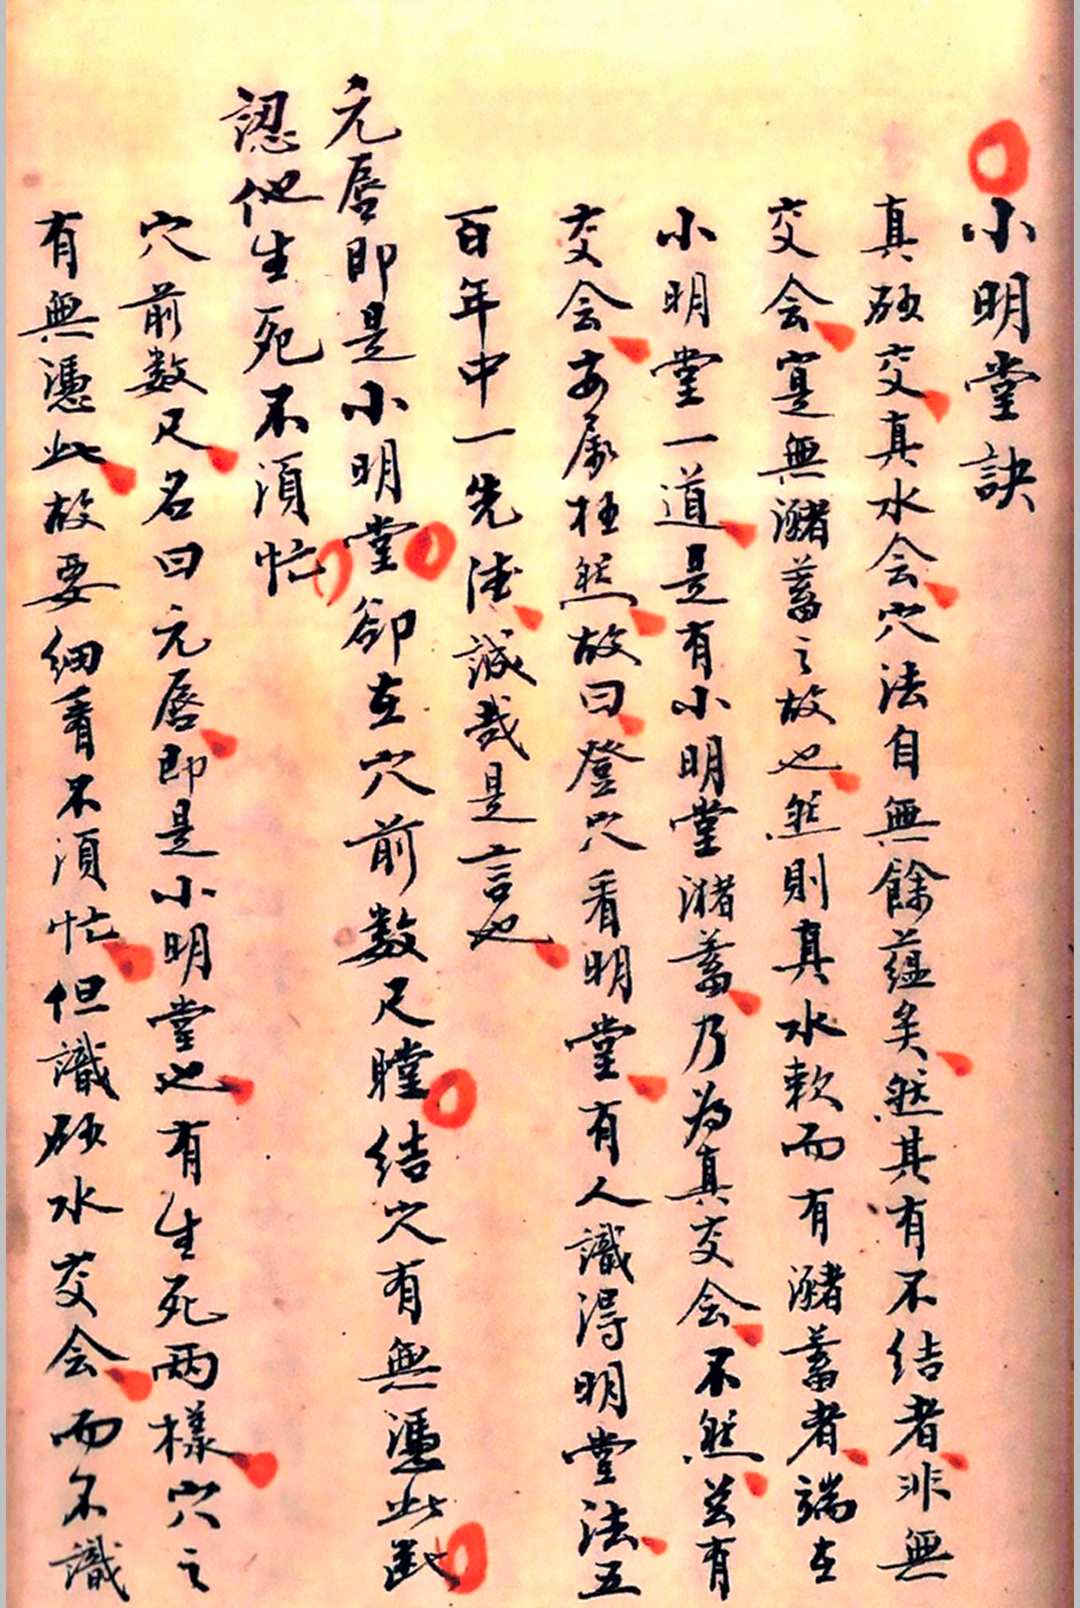 小明堂訣
真砂交真水会穴法自無餘蘊矣然其有不结者非無
交会寔無瀦蓄之故也然則真水軟而有瀦蓄者端在
小明堂一道是有小明堂潴蓄乃为真交会不然茲有
交会亦屬枉然故曰登穴看明堂有人識得明堂法五
百年中一先陸誠哉是言也
元唇即是小明堂卻在穴前数尺瞠结穴有無憑此断
認他生死不須忙
穴前数尺名曰元唇即是小明堂也有生死两樣穴之
有無憑此故要细看不須忙但識砂水交会而不識